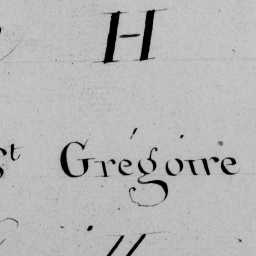 H
St Grégoire